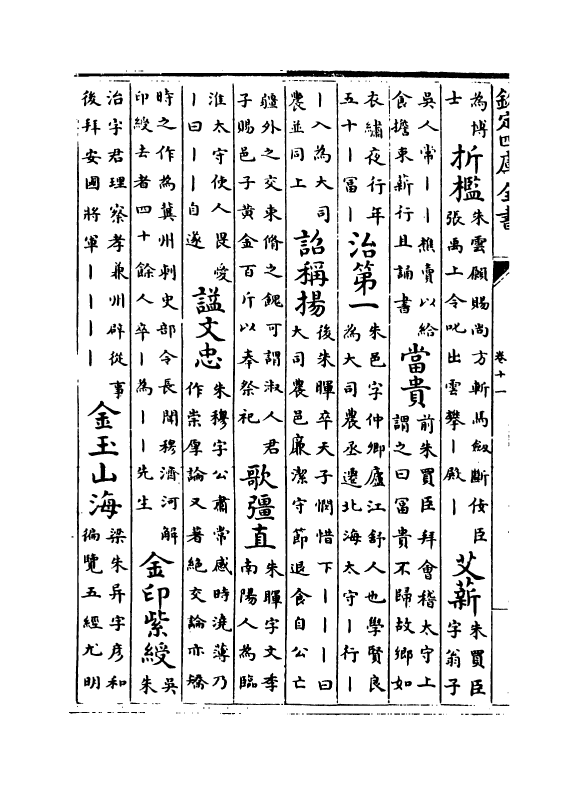 欽定四庫全書 卷十一
為博士 折檻 朱雲願賜尚方斬馬劔斷佞臣張禹上令叱出雲攀｜殿｜ 艾薪 朱買臣字翁子
吳人常｜｜樵賣以給食擔束薪行且誦書 當貴 前朱買臣拜會稽太守上謂之曰冨貴不歸故鄉如
衣繡夜行年五十｜冨｜ 治第一 朱邑字仲卿廬江舒人也學賢良為大司農丞遷北海太守｜行｜
｜入為大司農並同上 詔稱揚 後朱暉卒天子憫惜下｜｜｜曰大司農邑廉潔守節退食自公亡
疆外之交束脩之餽可謂淑人君子賜邑子黃金百斤以奉祭祀 歌彊直 朱暉字文季南陽人為臨
淮太守使人畏愛｜曰｜｜自遂 謚文忠 朱穆字公肅常感時澆薄乃作崇厚論又著絕交論亦矯
時之作為冀州刺史部令長聞穆濟河解印綬去者四十餘人卒｜為｜｜先生 金印紫綬 吳朱
治字君理察孝兼州辟從事後拜安國將軍｜｜｜｜ 金玉山海 梁朱异字彥和徧覽五經尤明